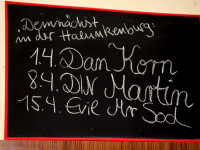 "Demnächst
in der Halunkenburg:
1.4. Dan Korn
8.4. DIN Martin
15.4. Evil Mr Sod